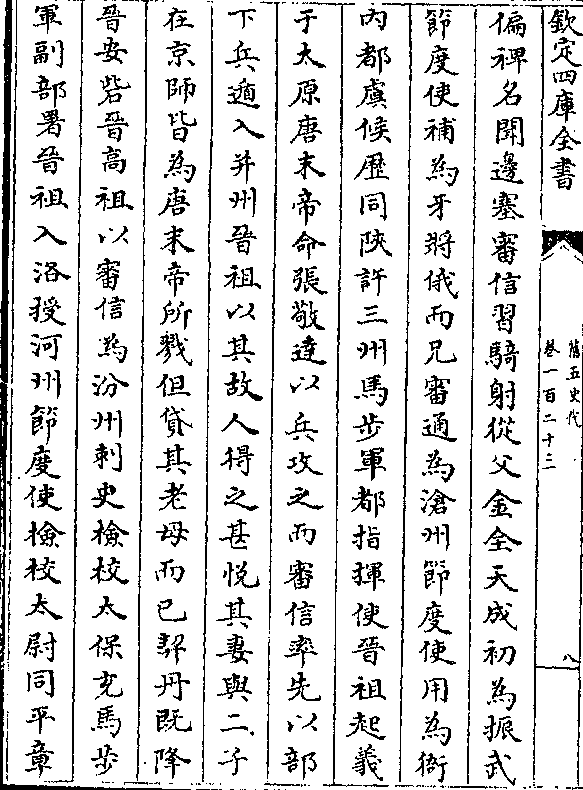 欽定四庫全書
舊五代史
卷一百二十三
八
偏裨名聞邊塞審信習騎射從父金全天成初為振武
節度使補為牙將俄而兄審通為滄州節度使用為衙
內都虞候歷同陝許三州馬步軍都指揮使晉祖起義
于太原唐末帝命張敬達以兵攻之而審信率先以部
下兵遁入并州晉祖以其故人得之甚悅其妻與二子
在京師皆為唐末帝所戮但貸其老母而已契丹既降
晉安砦晉高祖以審信為汾州刺史檢校太保充馬步
軍副部署晉祖入洛授河州節度使檢校太尉同平章